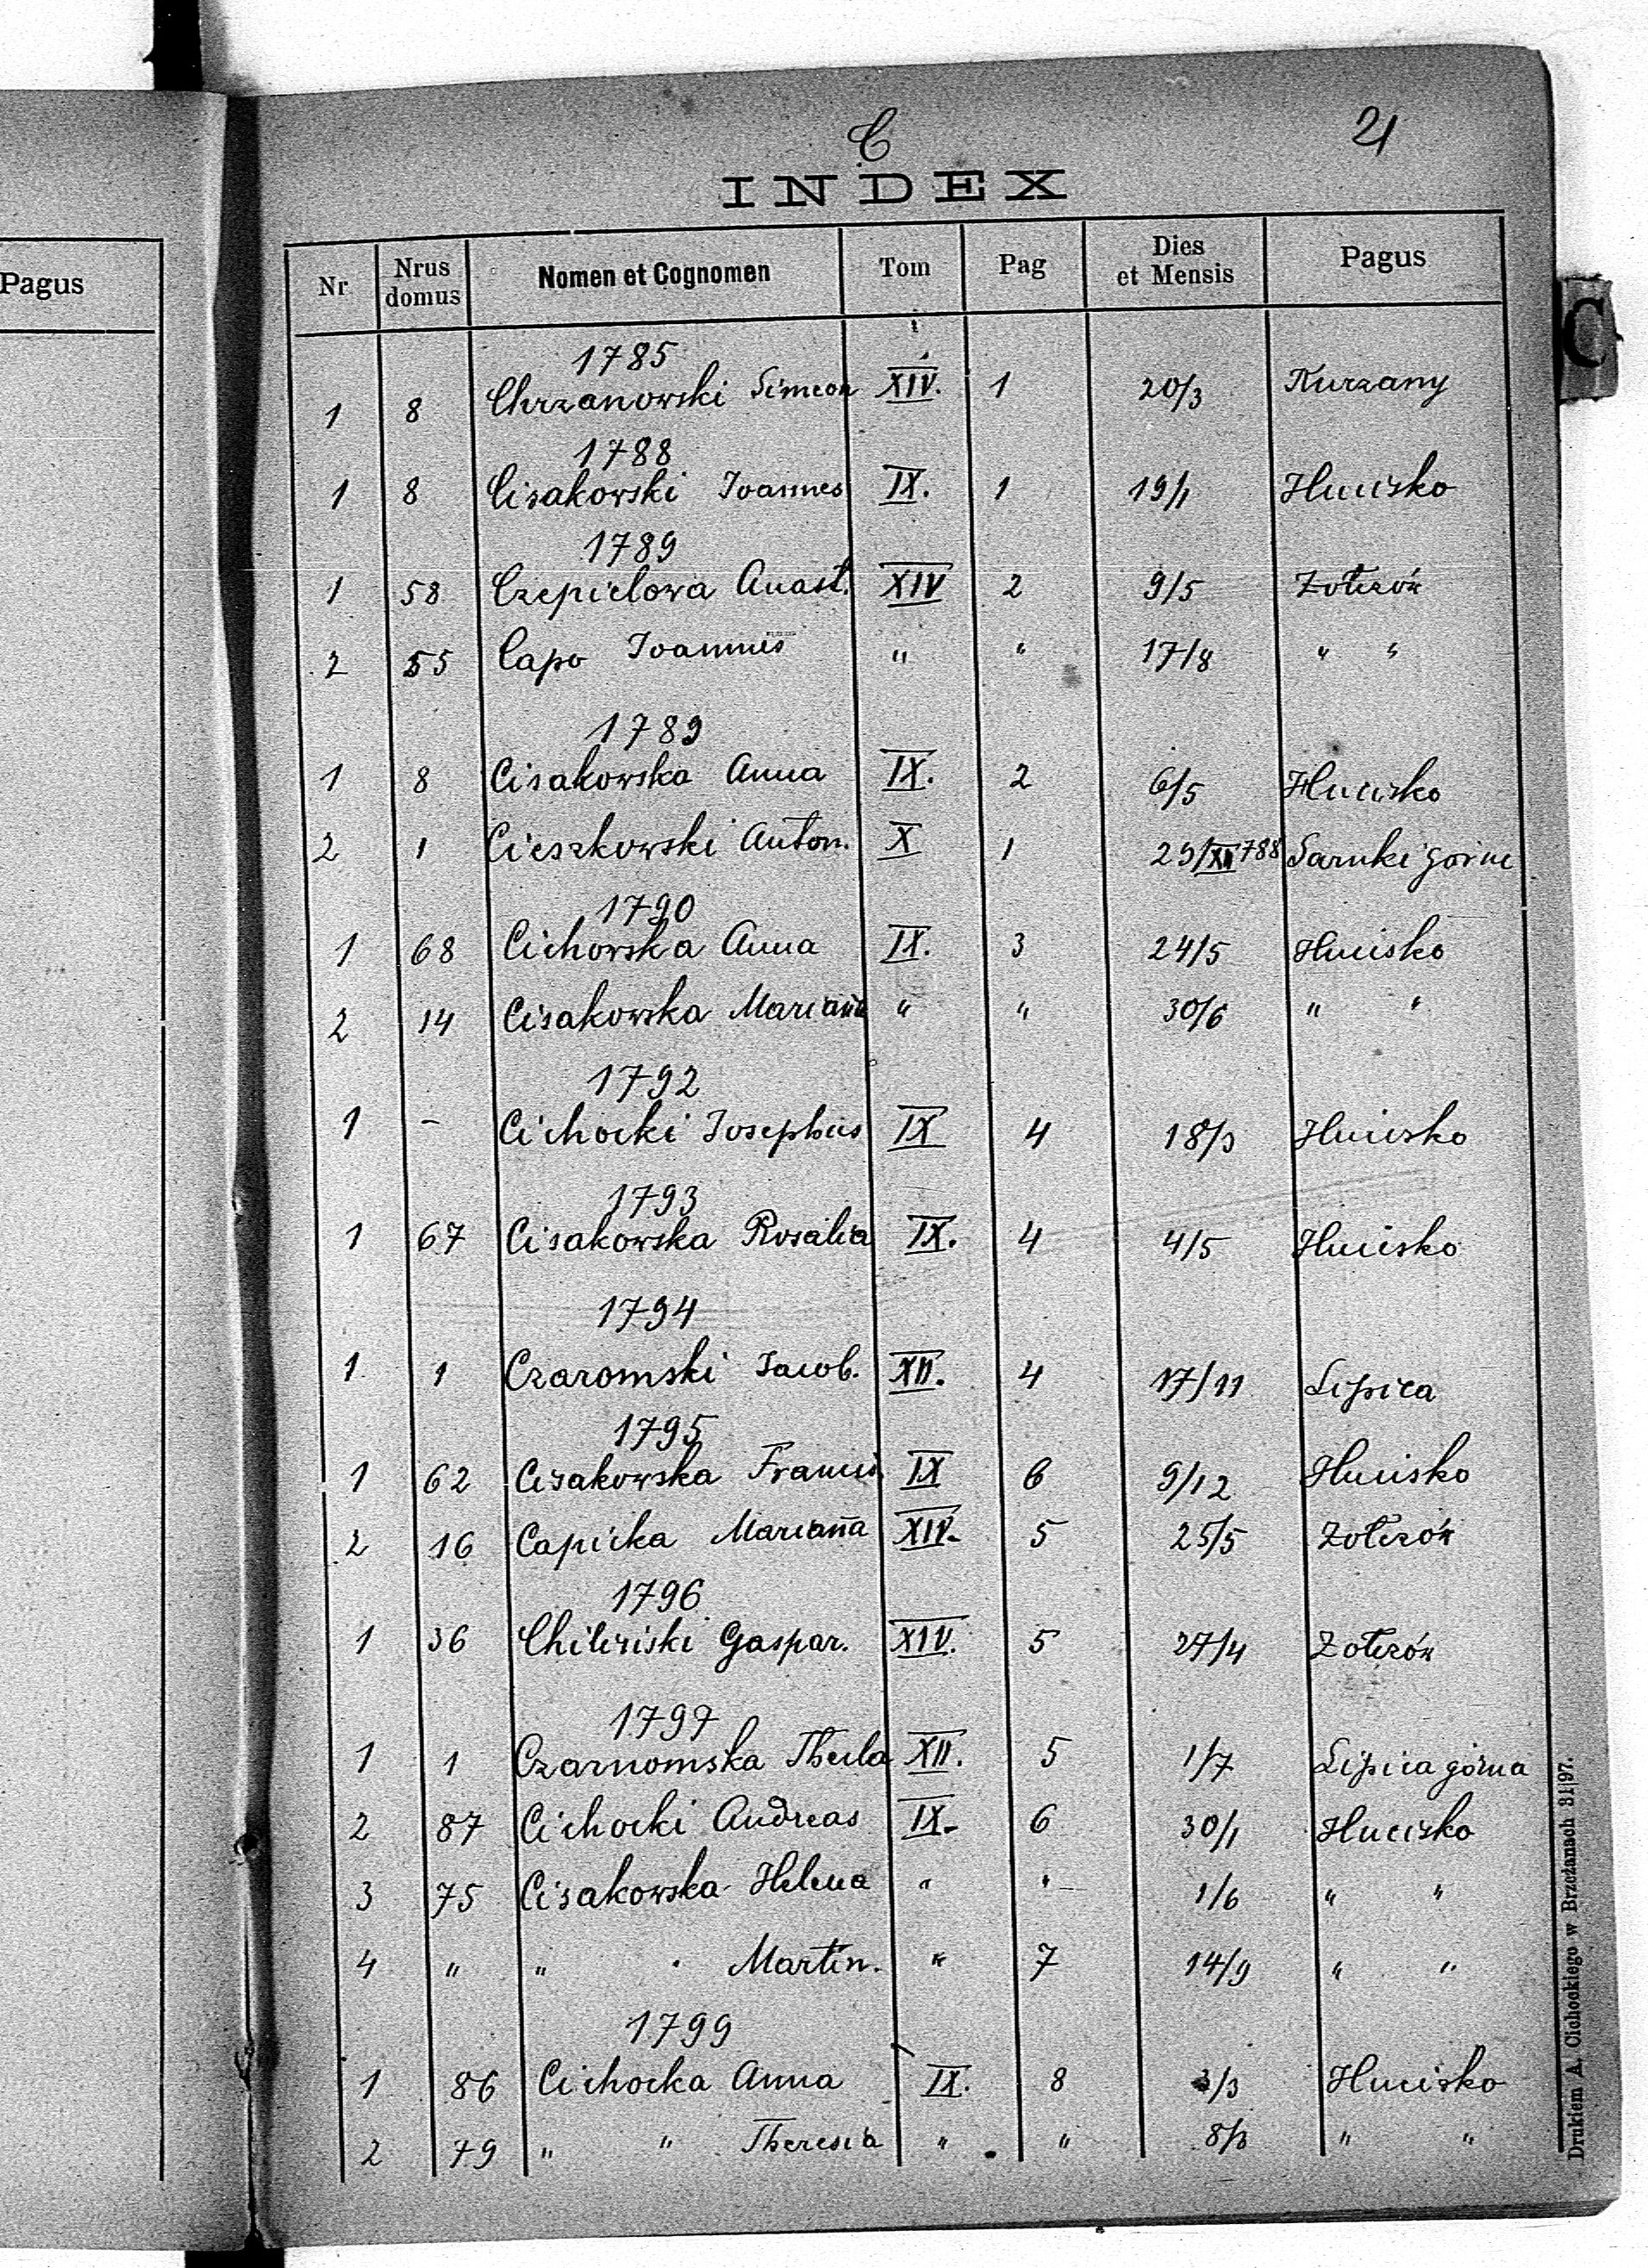 C 21
INDEX
Pagus
Nr Nrus domus Nomen et Cognomen Tom Pag Dies et Mensis Pagus
1785
1 8 Chrzanowski Simeon XIV. 1 20/3 Kurzany
1788
1 8 Cisakowski Joannes IX. 1 19/1 Hucisko
1789
1 58 Czepielowa Anast. XIV 2 9/5 Żołczów
2 55 Capo Joannes " " 17/8 " "
1789
1 8 Cisakowska Anna IX. 2 6/5 Hucisko
2 1 Cieszkowski Anton. X 1 29/XII 788 Sarnki górne
1790
1 68 Cichowska Anna IX. 3 24/5 Hucisko
2 14 Cisakowska Mariana " " 30/6 " "
1792
1 - Cichocki Josephus IX 4 18/3 Hucisko
1793
1 67 Cisakowska Rosalia IX. 4 4/5 Hucisko
1794
1 1 Czaromski Jacob. XII. 4 17/11 Lipica
1795
1 62 Cisakowska Francis. IX 6 9/12 Hucisko
2 16 Capicka Mariana XIV. 5 25/5 Żołczów
1796
1 36 Gaspar. XIV. 5 27/4 Żołczów
1797
1 1 Czarnomska Thecla XII. 5 1/7 Lipica górna
2 87 Cichocki Andreas IX. 6 30/1 Hucisko
3 75 Cisakowska Helena " " 1/6 " "
4 " " " Martin. " 7 14/9 " "
1799
1 86 Cichocka Anna IX. 8 3/3 Hucisko
2 79 " " Theresia " " " "
Drukiem A. Cichockiego w Brzeżanach 31|97.
C